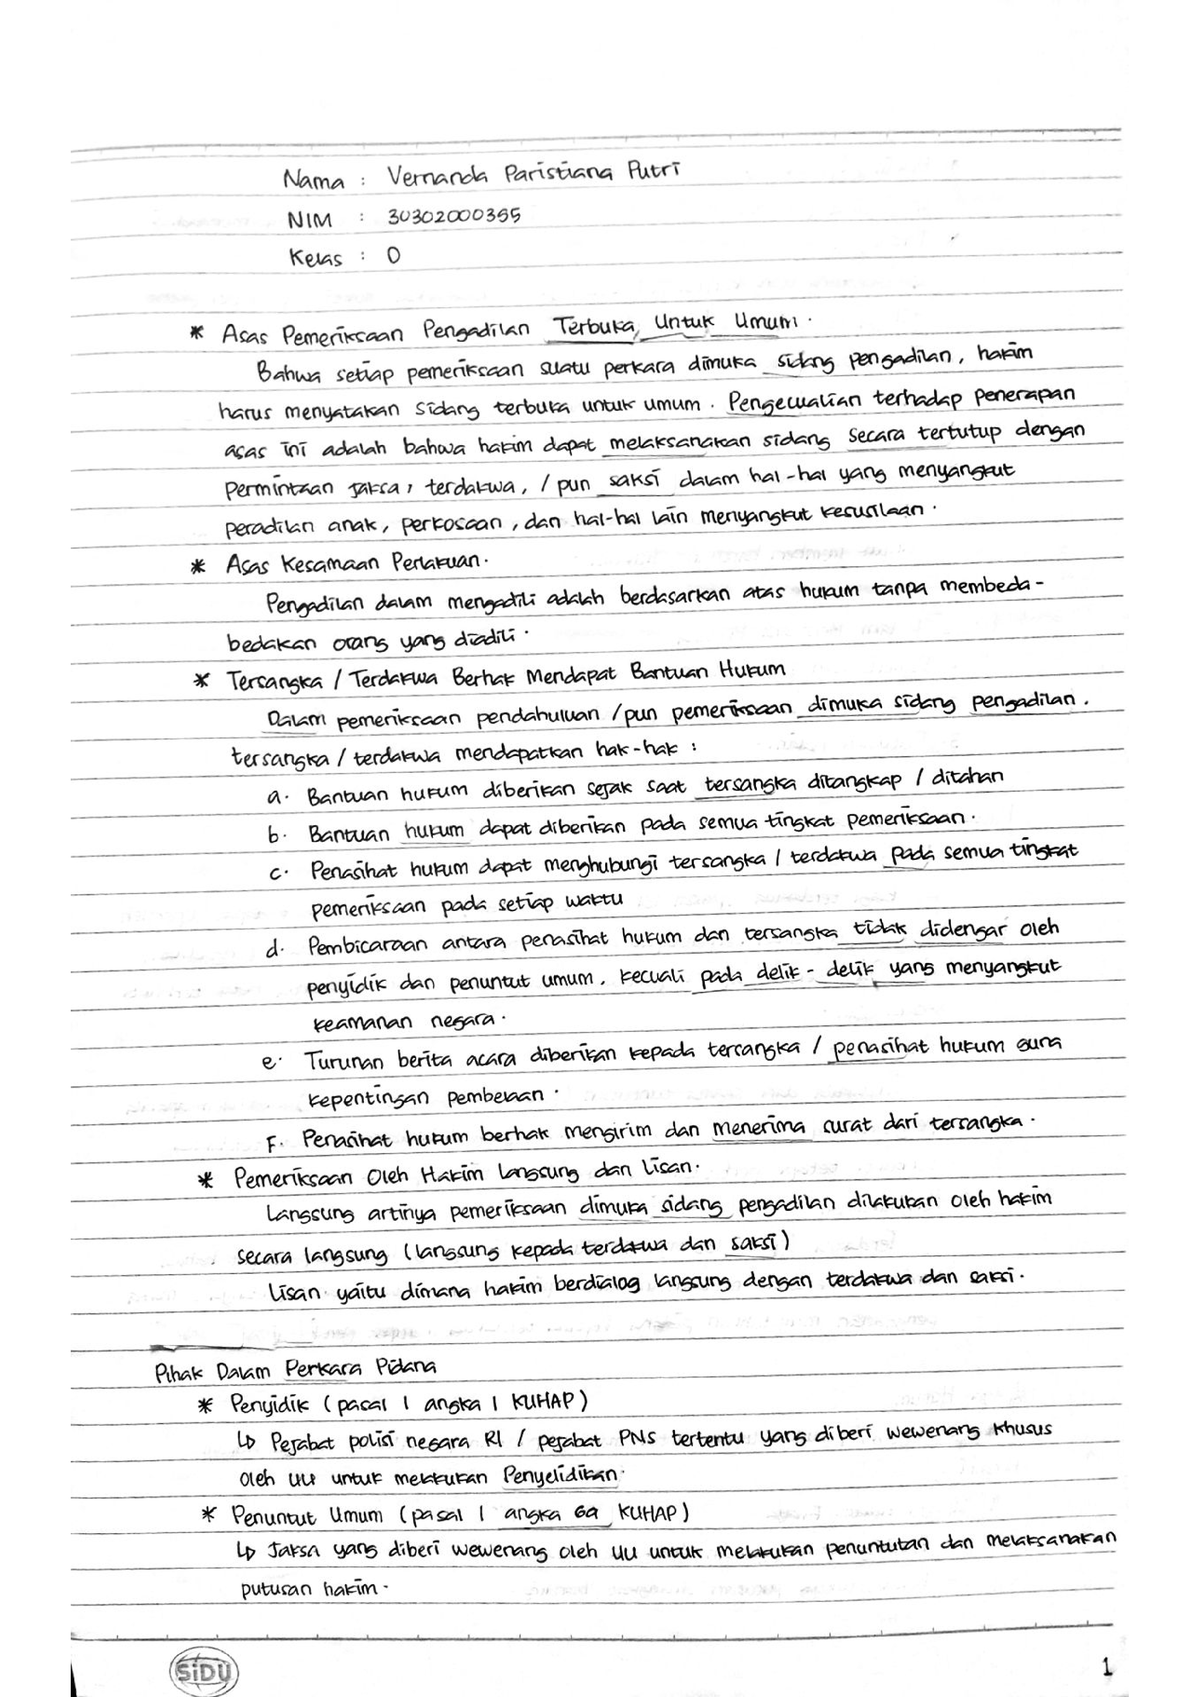 Nama : Vernanda Paristiana Putri
NIM : 30302000355
Kelas : O
* Asas Pemeriksaan Pengadilan Terbuka Untuk Umum.
Bahwa setiap pemeriksaan suatu perkara dimuka sidang pengadilan, hakim
harus menyatakan sidang terbuka untuk umum. Pengecualian terhadap penerapan
asas ini adalah bahwa hakim dapat melaksanakan sidang secara tertutup dengan
permintaan jaksa, terdakwa, / pun saksi dalam hal-hal yang menyangkut
peradilan anak, perkosaan, dan hal-hal lain menyangkut kesusilaan.
* Asas Kesamaan Perlakuan.
Pengadilan dalam mengadili adalah berdasarkan atas hukum tanpa membeda-
bedakan orang yang diadili.
* Tersangka / Terdakwa Berhak Mendapat Bantuan Hukum
Dalam pemeriksaan pendahuluan / pun pemeriksaan dimuka sidang pengadilan.
tersangka / terdakwa mendapatkan hak-hak :
a. Bantuan hukum diberikan sejak saat tersangka ditangkap / ditahan
b. Bantuan hukum dapat diberikan pada semua tingkat pemeriksaan.
c. Penasihat hukum dapat menghubungi tersangka / terdakwa pada semua tingkat
pemeriksaan pada setiap waktu
d. Pembicaraan antara penasihat hukum dan tersangka tidak didengar oleh
penyidik dan penuntut umum, kecuali pada delik-delik yang menyangkut
keamanan negara.
e. Turunan berita acara diberikan kepada tersangka / penasihat hukum guna
kepentingan pembelaan.
F. Penasihat hukum berhak mengirim dan menerima surat dari tersangka.
* Pemeriksaan Oleh Hakim Langsung dan Lisan.
Langsung artinya pemeriksaan dimuka sidang pengadilan dilakukan oleh hakim
secara langsung (langsung kepada terdakwa dan saksi)
Lisan yaitu dimana hakim berdialog langsung dengan terdakwa dan saksi.
Pihak Dalam Perkara Pidana
* Penyidik (pasal 1 angka 1 KUHAP)
↳ Pejabat polisi negara RI / pejabat PNS tertentu yang diberi wewenang khusus
oleh UU untuk melakukan Penyelidikan.
* Penuntut Umum (pasal 1 angka 6a KUHAP)
↳ Jaksa yang diberi wewenang oleh UU untuk melakukan penuntutan dan melaksanakan
putusan hakim.
SiDU
1